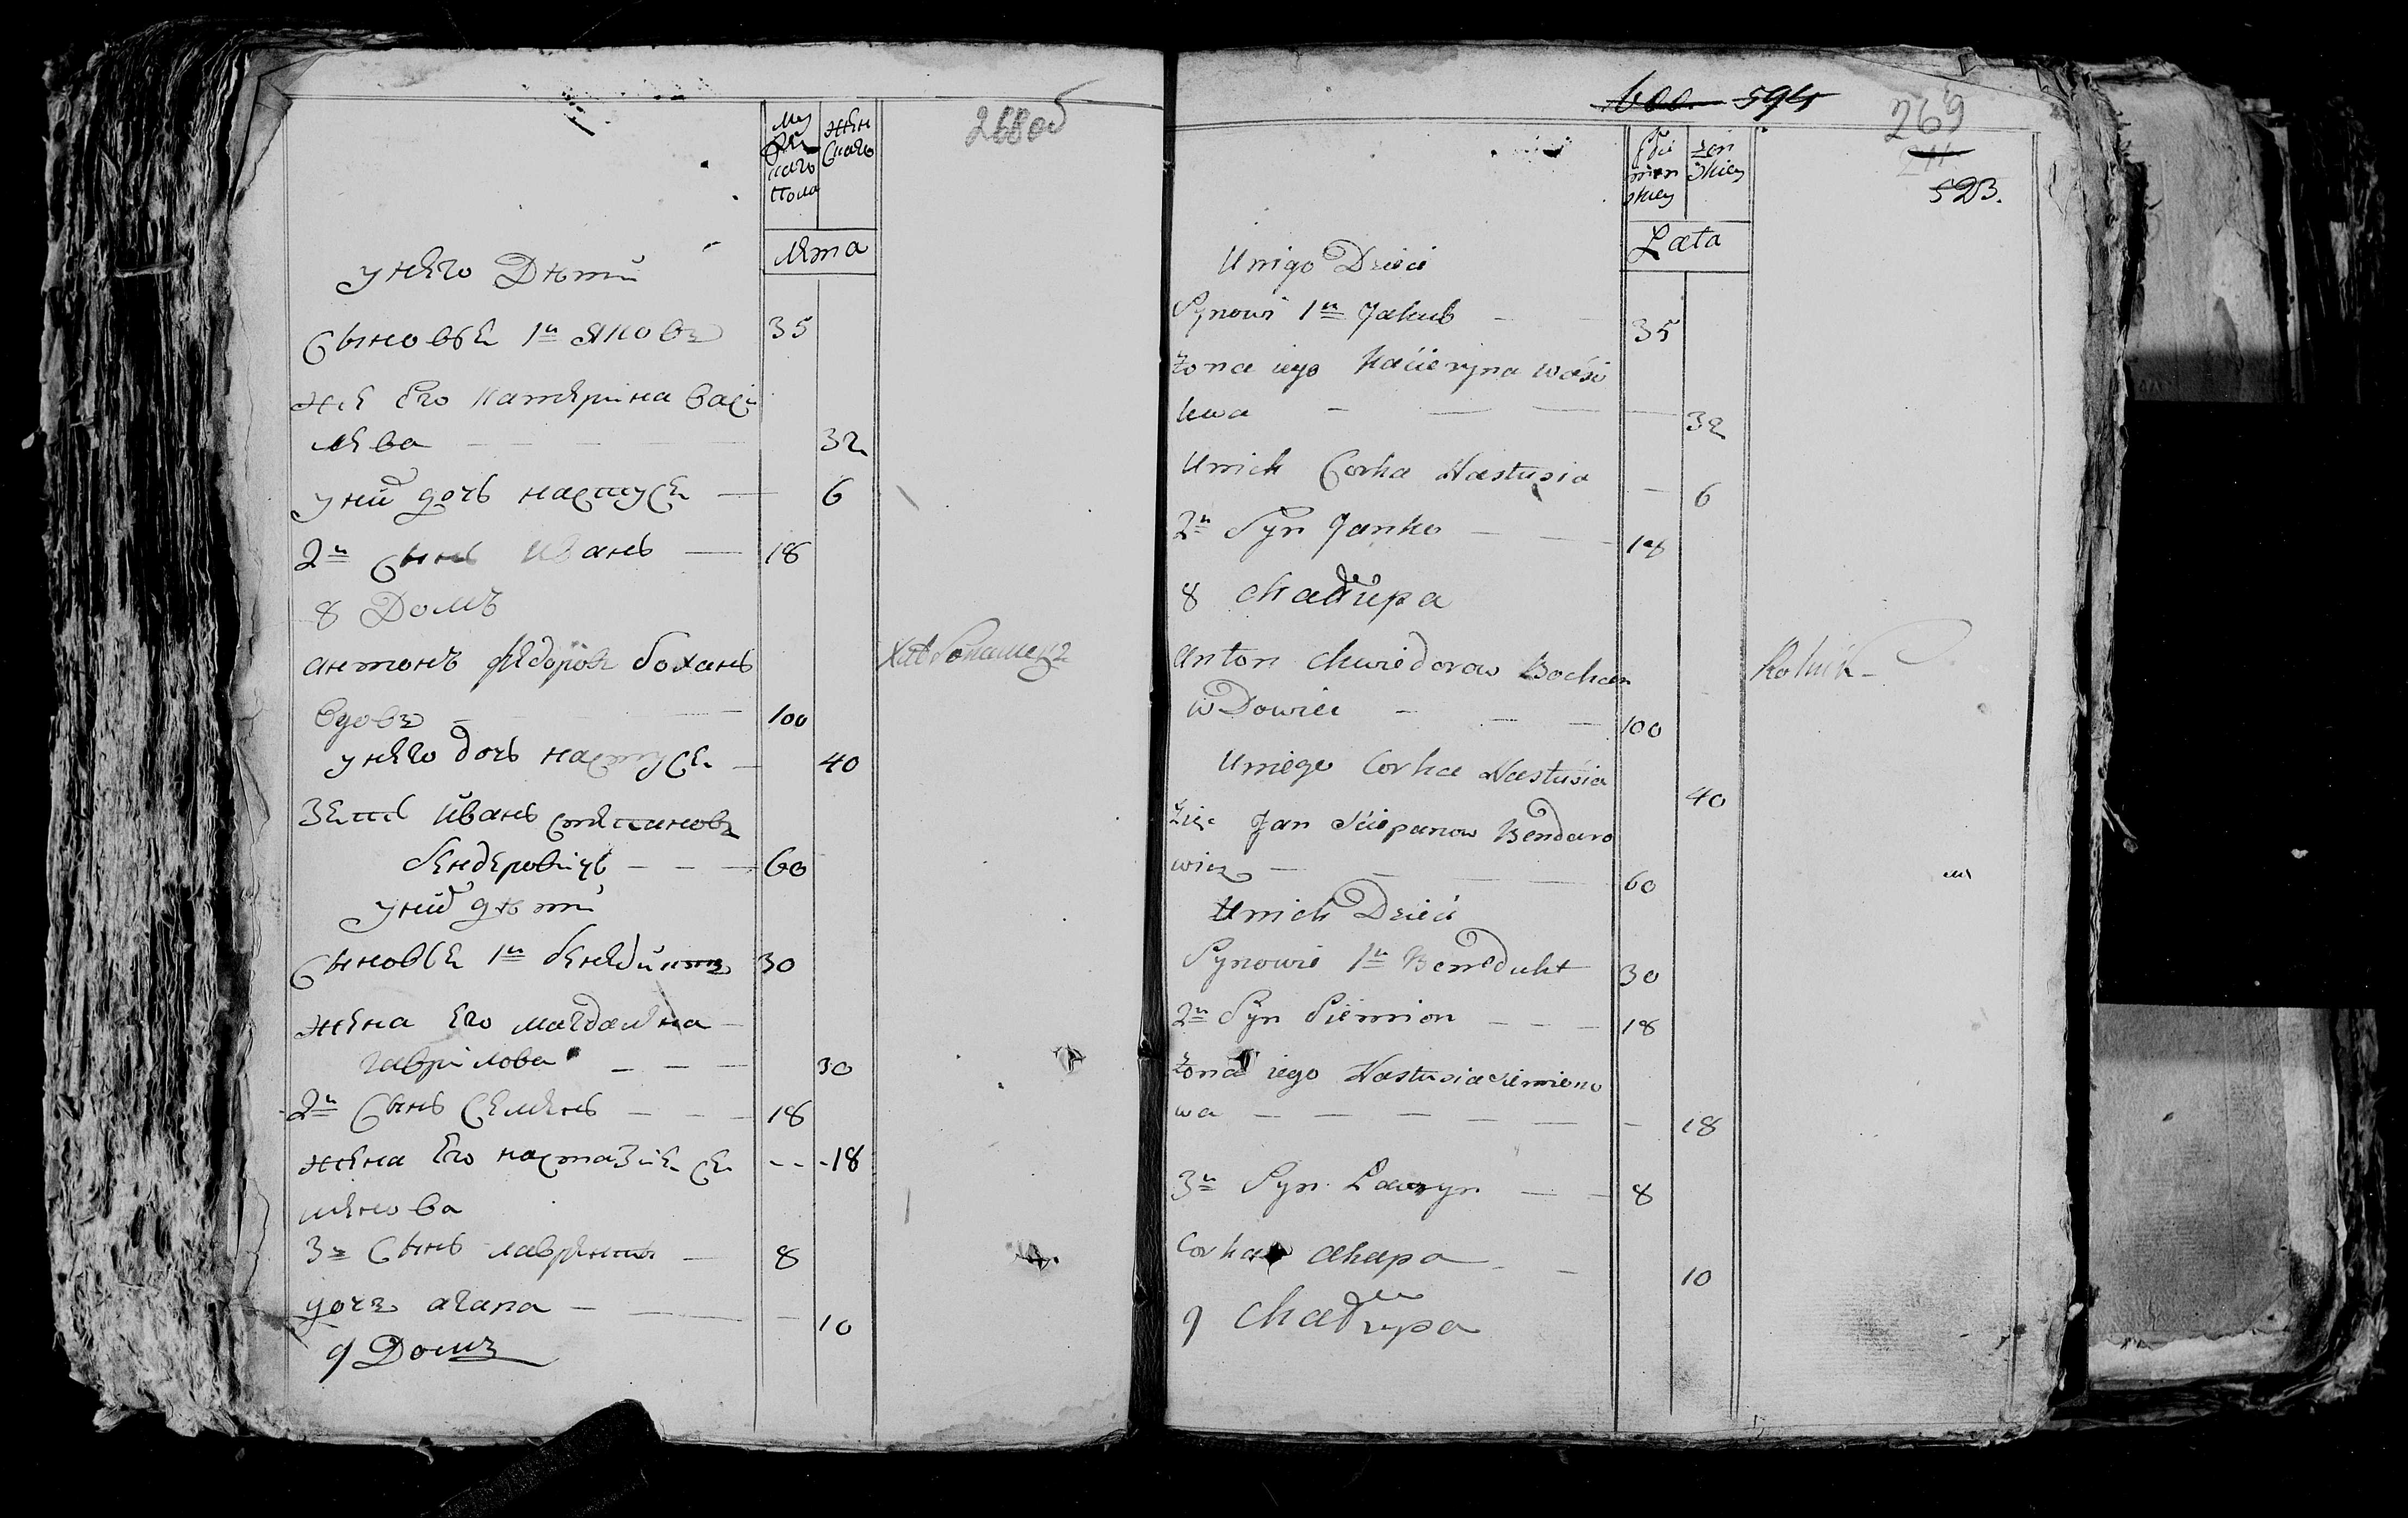 268об
Муж
ска
го
пола
жен
скаго
лета
у него Дети
сыновья 1й Яковъ 35
же его катерина васи
лева 32
у них дочь настуся 6
2й сынъ иванъ 18
8 Домъ
антонъ федоровъ боханъ хлебопашецъ
вдовъ 100
у него дочь настуся 40
зять иванъ степановъ
бендеровичъ 60
у них дети
сыновья 1й бенедиктъ 30
жена его магдалена
гаврилова 30
2й сынъ семенъ 18
жена его настазия се 18
менова
3й сынъ лаврентий 8
дочь агапа 10
9 Домъ
600 594
269
523.
męn
skiey
żeń
skiey
Lata
Unigo Dzieci
Synowi 1й Jakub 35
żona iego Kacieryna Wasi
lewa 32
Unich Corka Nastusia 6
2й Syn Janko 18
8 chałupa
Anton Chwiedorow Bochan Rolnik
wDowiec 100
Uniego Corka Nastusia 40
Zięc Jan Sciepanow Bendaro
wicz 60
Unich Dzieci
Synowie 1й Benedykt 30
2й Syn Siemion 18
żona iego Nastusia Siemiono
wa 18
3й Syn Ławryn 8
Corka Ahapa 10
9 chałupa